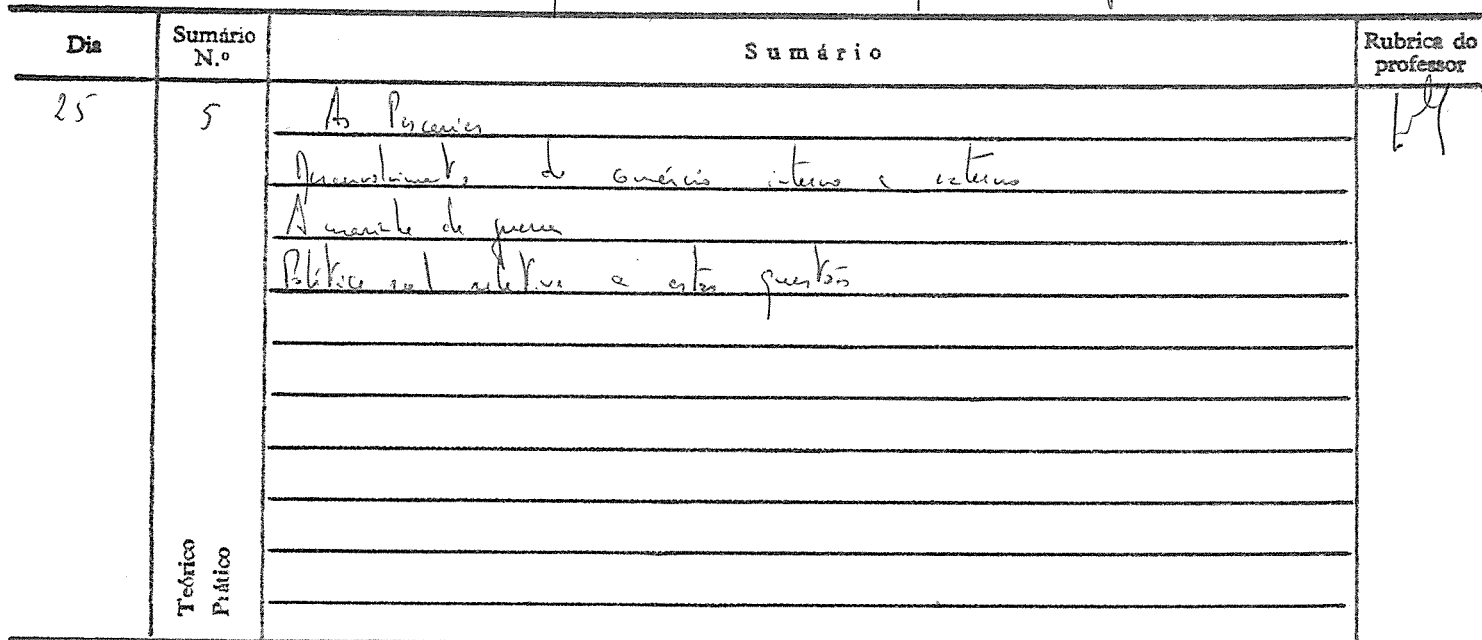 Dia
Sumário N.º
Sumário
Rubrica do professor
25
5
As Pescarias
Desenvolvimento do comércio interno e externo
A marinha de guerra
Política relativa a estas questões
Teórico
Prático